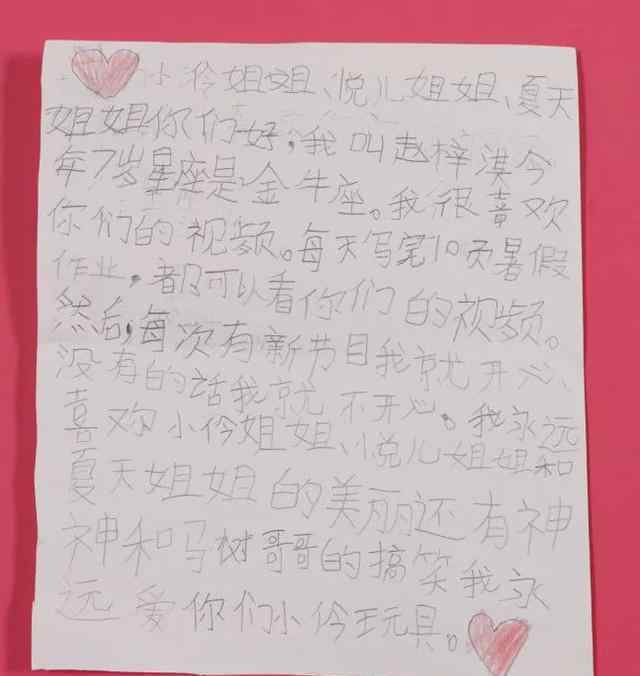 小伶姐姐、悦儿姐姐、夏天
姐姐你们好，我叫赵梓淇今
年7岁星座是金牛座。我很喜欢
你们的视频。每天写完10页暑假
作业，都可以看你们的视频。
然后，每次有新节目我就开心、
没有的话我就不开心。我永远
喜欢小伶姐姐、悦儿姐姐和
夏天姐姐的美丽还有神
神和马树哥哥的搞笑我永
远爱你们小伶玩具。